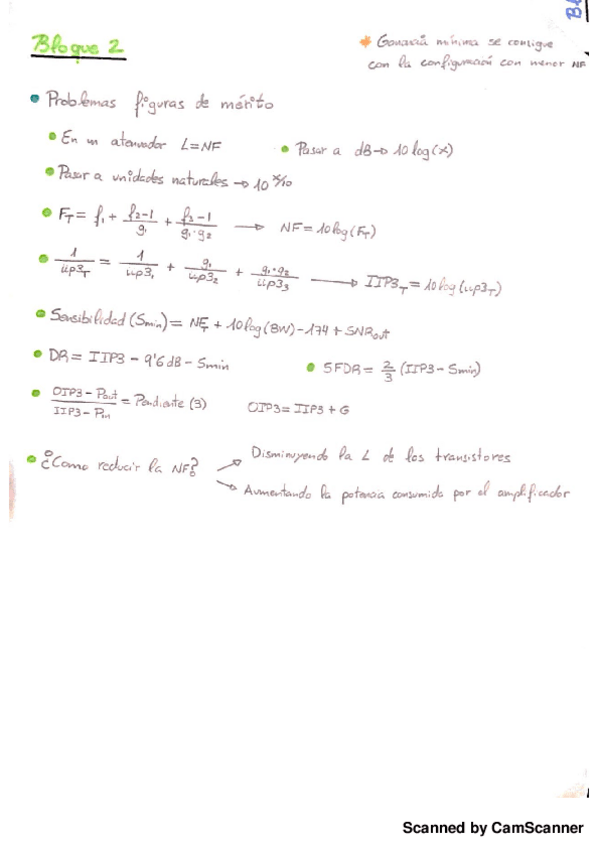 Bl
Bloque 2
* Ganancia mínima se consigue
con la configuración con menor NF
• Problemas figuras de mérito
• En un atenuador L=NF
• Pasar a dB → 10log(x)
• Pasar a unidades naturales → 10^x/10
• F_T = f₁ + (f₂-1)/g₁ + (f₃-1)/(g₁·g₂) → NF = 10log(F_T)
• 1/iip3_T = 1/iip3₁ + g₁/iip3₂ + (g₁·g₂)/iip3₃ → IIP3_T = 10log(iip3_T)
• Sensibilidad (Smin) = NF_T + 10log(BW) - 174 + SNRout
• DR = IIP3 - 9'6 dB - Smin
• SFDR = 2/3 (IIP3 - Smin)
• (OIP3 - Pout)/(IIP3 - Pin) = Pendiente (3)
OIP3 = IIP3 + G
• ¿Como reducir la NF?
→ Disminuyendo la L de los transistores
→ Aumentando la potencia consumida por el amplificador
Scanned by CamScanner